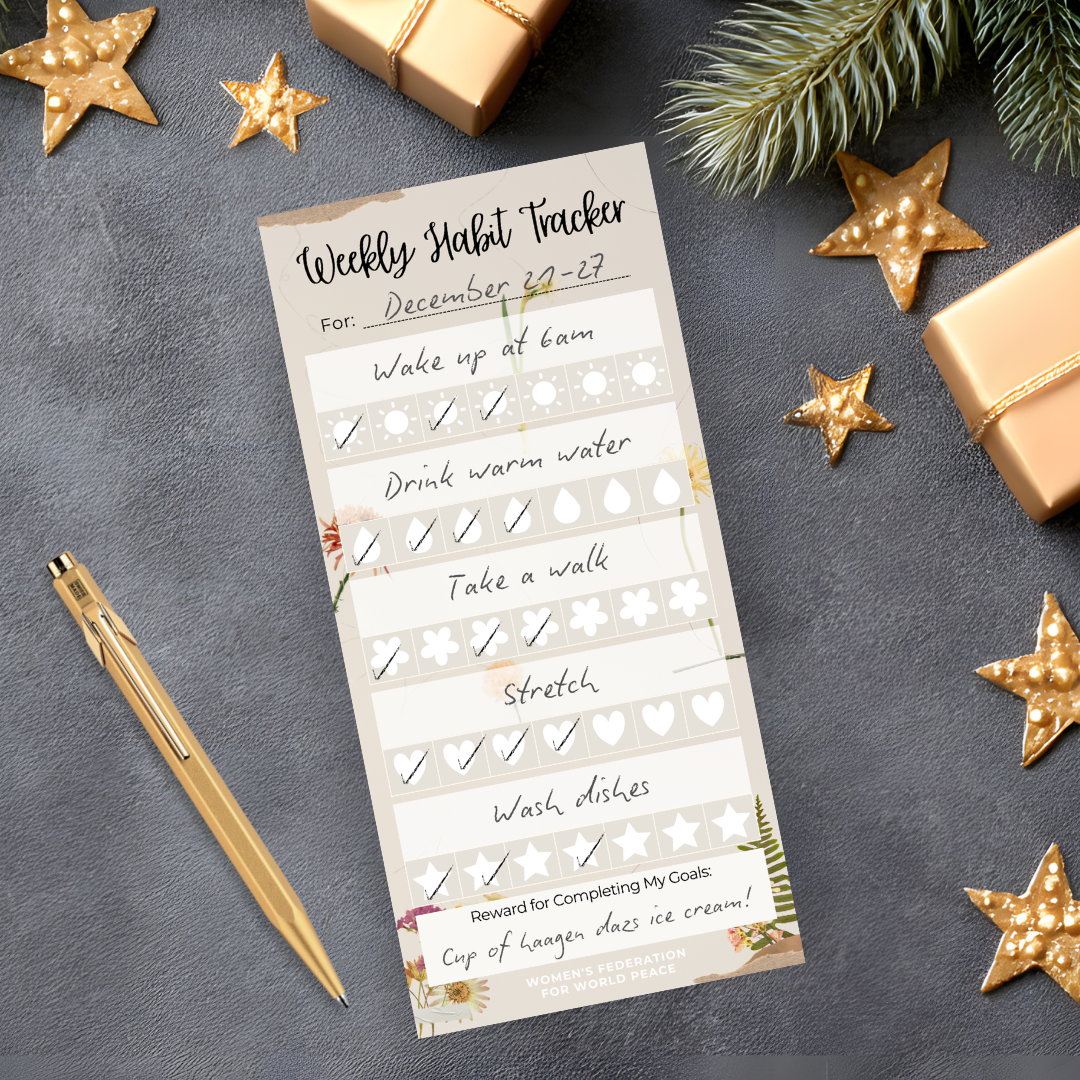 Weekly Habit Tracker
For: December 21-27
Wake up at 6am
Drink warm water
Take a walk
Stretch
Wash dishes
Reward for Completing My Goals:
Cup of haagen dazs ice cream!
WOMEN'S FEDERATION
FOR WORLD PEACE